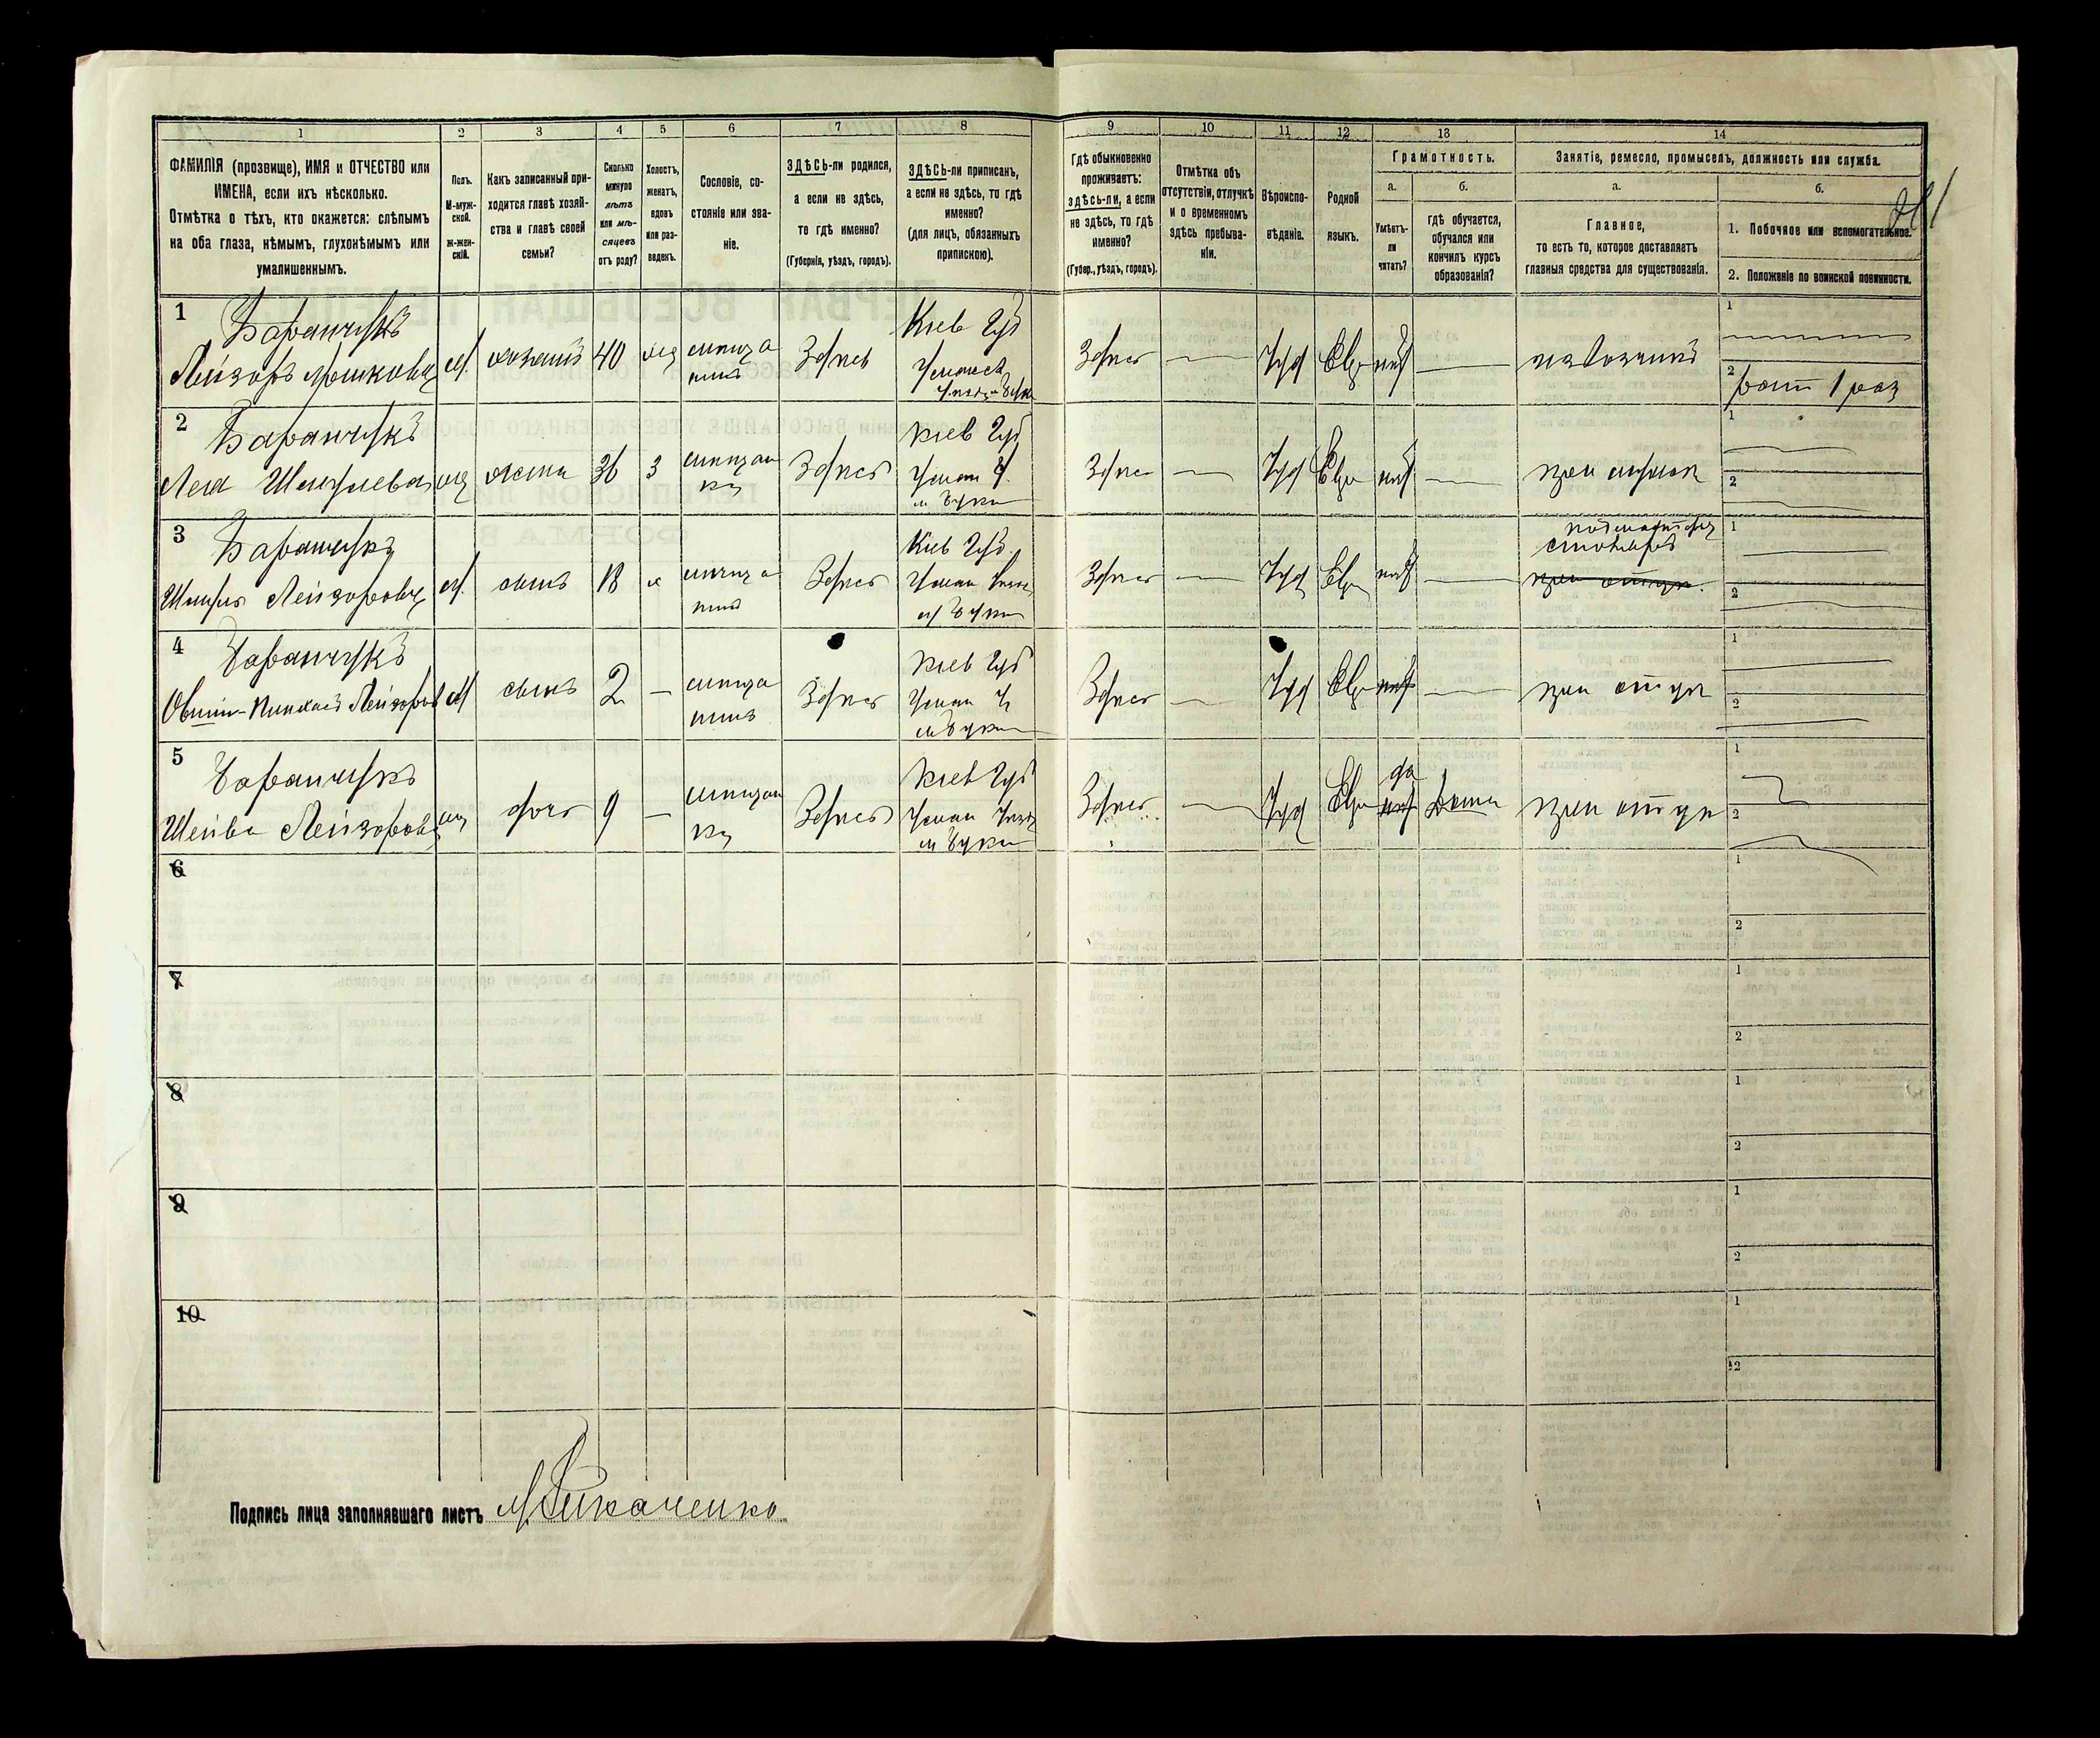 1 2 3 4 5 6 7 8 9 10 11 12 13 14
ФАМИЛІЯ (прозвище), ИМЯ и ОТЧЕСТВО или
ИМЕНА, если ихъ нѣсколько.
Отмѣтка о тѣхъ, кто окажется: слѣпымъ
на оба глаза, нѣмымъ, глухонѣмымъ или
умалишеннымъ.
Полъ.
М-муж-
ской.
ж-жен-
скій.
Какъ записанный при-
ходится главѣ хозяй-
ства и главѣ своей
семьи?
Сколько
минуло
лѣтъ
или мѣ-
сяцевъ
отъ роду?
Холостъ,
женатъ,
вдовъ
или раз-
веденъ.
Сословіе, со-
стояніе или зва-
ніе.
ЗДѢСЬ-ли родился,
а если не здѣсь,
то гдѣ именно?
(Губернія, уѣздъ, городъ).
ЗДѢСЬ-ли приписанъ,
а если не здѣсь, то гдѣ
именно?
(для лицъ, обязанныхъ
припискою).
Гдѣ обыкновенно
проживаетъ:
здѣсь-ли, а если
не здѣсь, то гдѣ
именно?
(Губер., уѣздъ, городъ).
Отмѣтка объ
отсутствіи, отлучкѣ
и о временномъ
здѣсь пребыва-
ніи.
Вѣроиспо-
вѣданіе.
Родной
языкъ.
Грамотность.
а.
Умѣетъ-
ли
читать?
б.
гдѣ обучается,
обучался или
кончилъ курсъ
образованія?
Занятіе, ремесло, промыселъ, должность или служба.
а.
Главное,
то есть то, которое доставляетъ
главныя средства для существованія.
б.
1. Побочное или вспомогательное.
2. Положеніе по воинской повинности.
1
Баранчукъ
Лейзоръ Мошковъ м. хозяинъ 40 жен мѣщанинъ Здѣсь Кіев Губ Здѣсь — Іуд Евр нѣт — извозчикъ
2
рат 1 раз
2
Баранчукъ
Лея жен жена 36 з мѣщанка Здѣсь Кіев Губ Уман У. м Буки Здѣсь — Іуд Евр нѣт — при мужѣ
3
Баранчукъ
Лейзоровъ м. сынъ 18 х мѣщанинъ Здѣсь Кіев Губ. м Буки Здѣсь — Іуд Евр нѣт —
столяръ
при отцѣ.
4
Баранчукъ
Пинхасъ Лейзоровъ м сынъ 2 — мѣщанинъ Здѣсь Кіев Губ Уман У м Буки Здѣсь — Іуд Евр нѣт — при отцѣ
5
Баранчукъ
Шейва Лейзорова жен дочь 9 — мѣщанка Здѣсь Кіев Губ Уман Уѣзд м Буки Здѣсь — Іуд Евр да нѣт Дома при отцѣ
6
7
8
9
10
Подпись лица заполнявшаго листъ